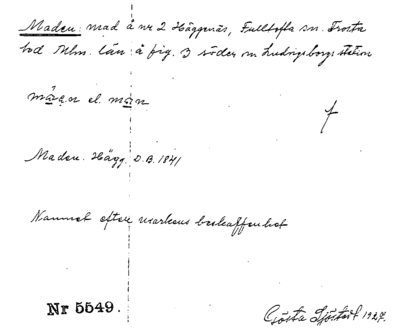 Maden: mad å nr 2 Häggenäs, Fulltofta sn. Frosta
hd Mlm. län: å fig. 3 söder om Ludvigsborgs station
Maden. Hägg. D.B. 1841
Namnet efter markens beskaffenhet
Nr 5549.
Gösta Sjöstedt 1927.